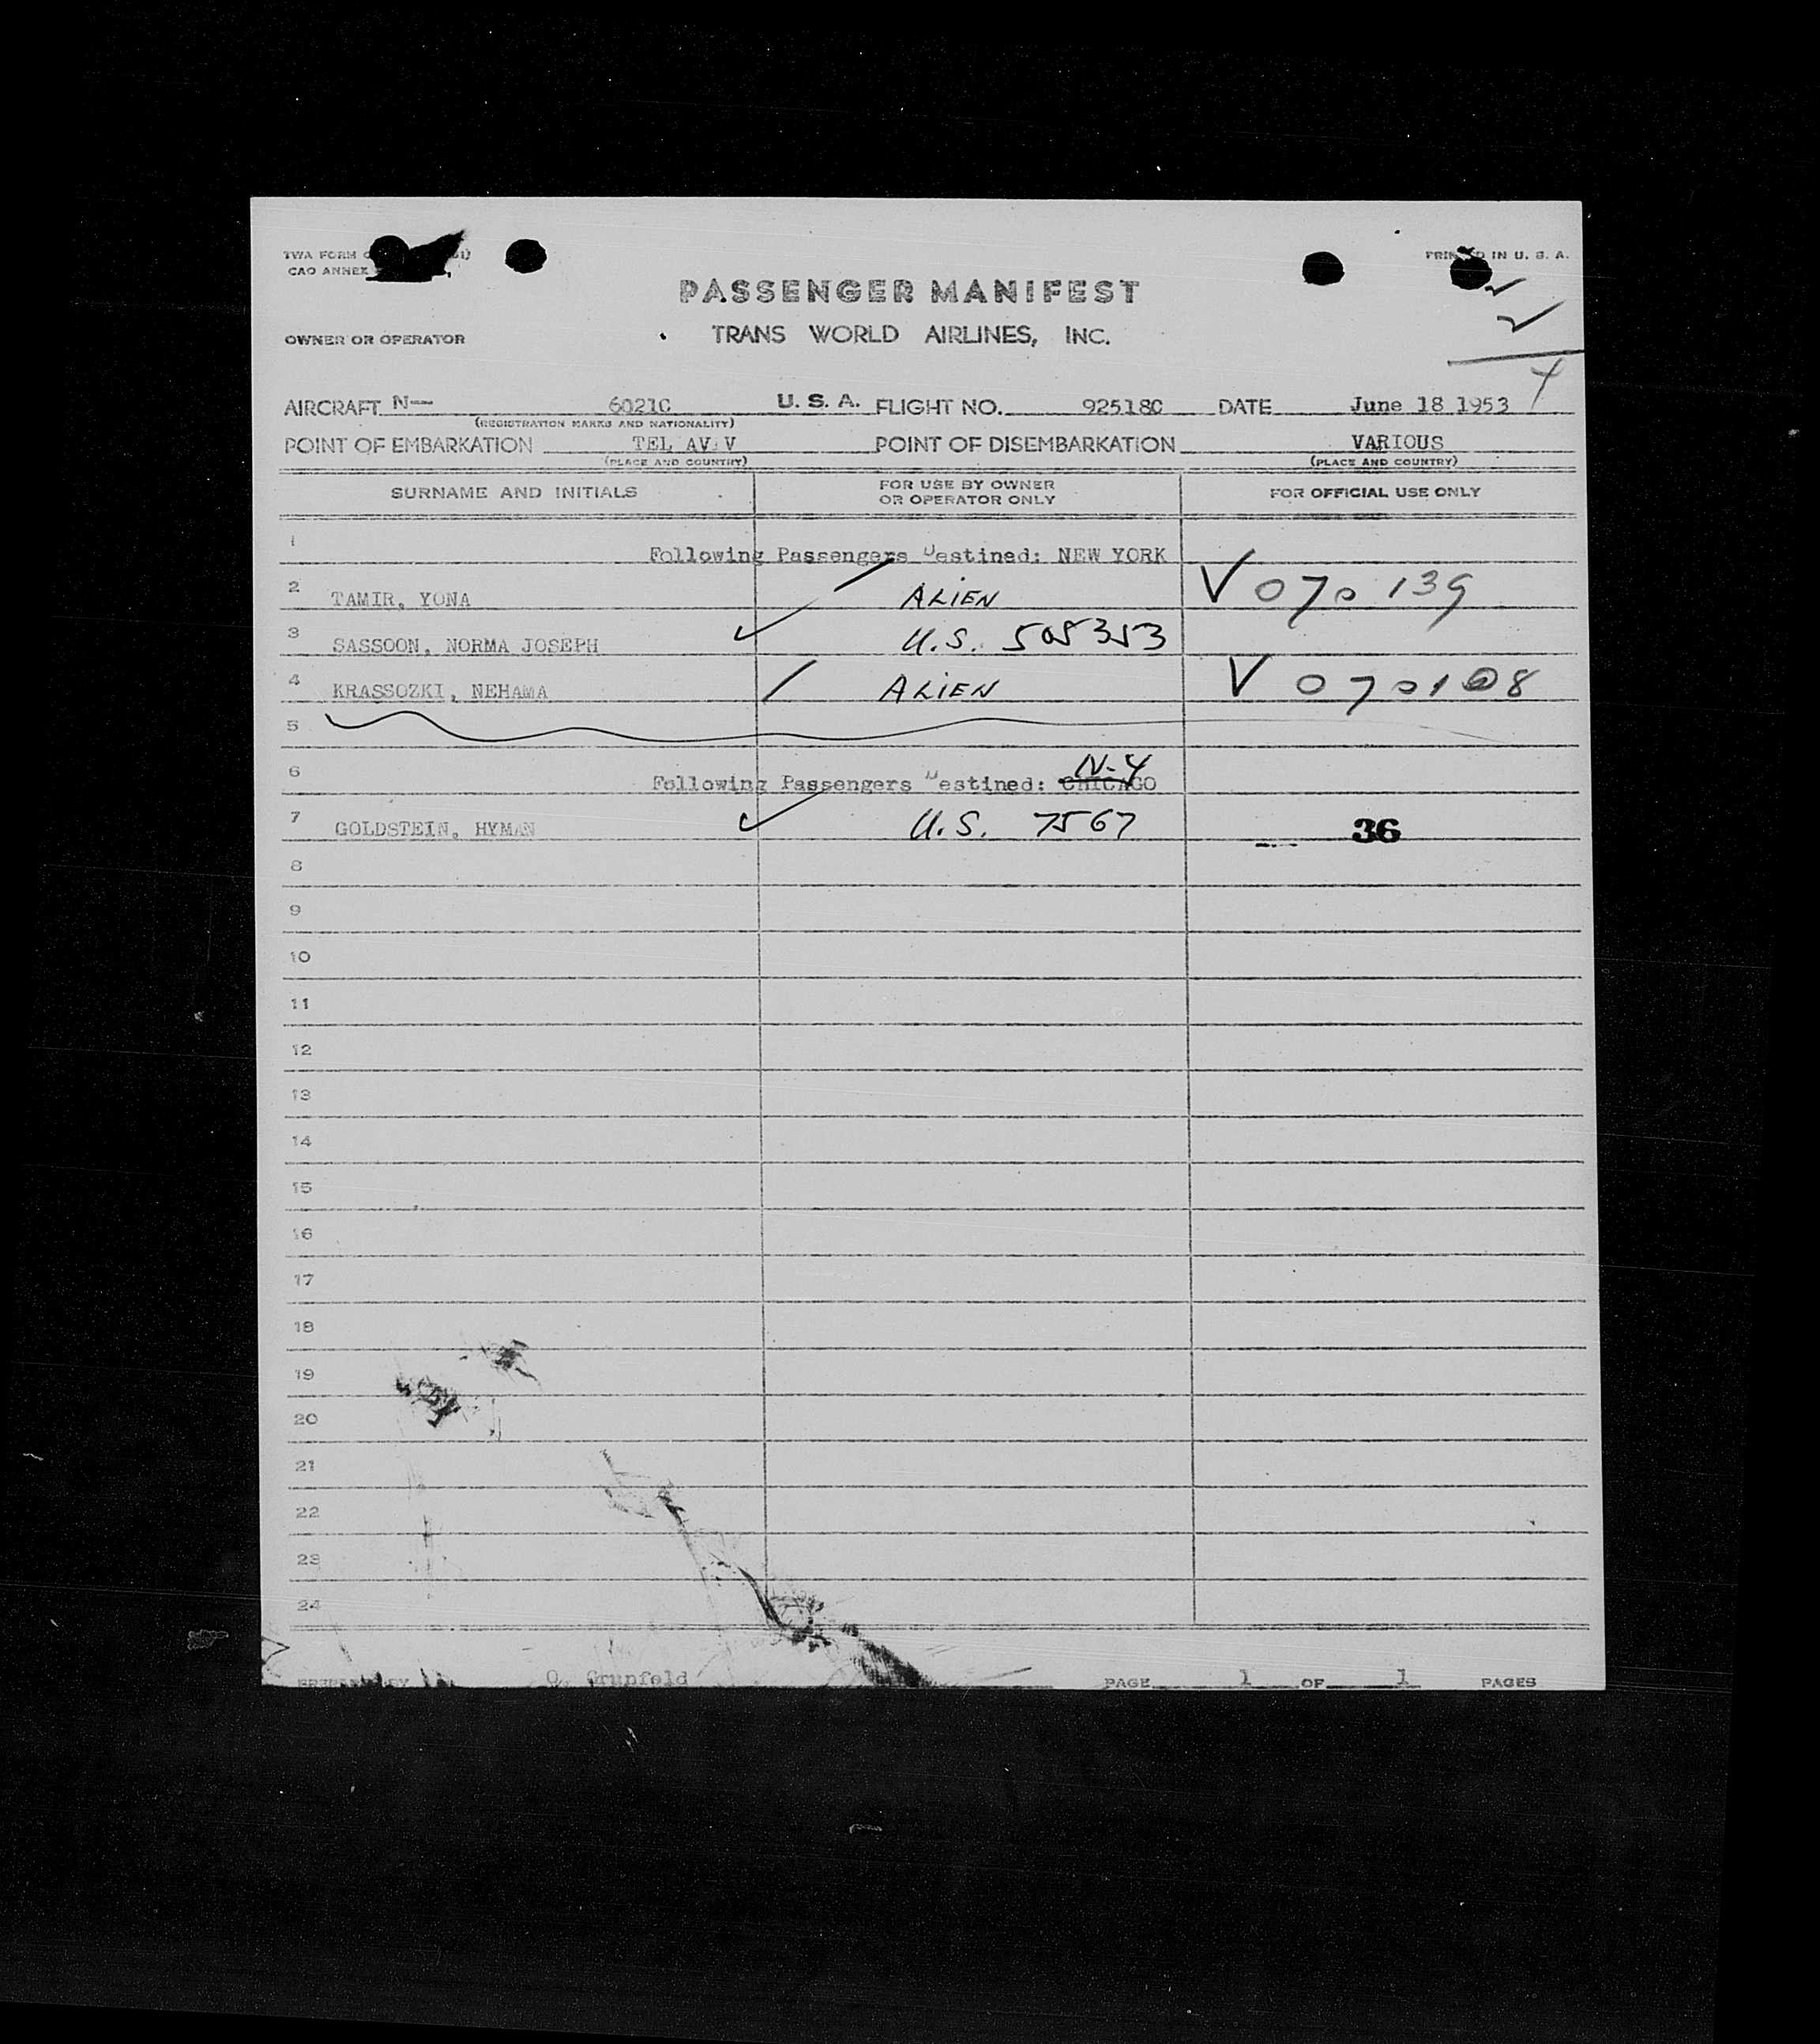 TWA FORM
CAO ANNEX
PRINTED IN U. S. A.
PASSENGER MANIFEST
OWNER OR OPERATOR
TRANS WORLD AIRLINES, INC.
4
AIRCRAFT N— 6021C U. S. A. FLIGHT NO. 92518C DATE June 18 1953
(REGISTRATION MARKS AND NATIONALITY)
POINT OF EMBARKATION TEL AVIV POINT OF DISEMBARKATION VARIOUS
(PLACE AND COUNTRY) (PLACE AND COUNTRY)
SURNAME AND INITIALS FOR USE BY OWNER OR OPERATOR ONLY FOR OFFICIAL USE ONLY
1 Following Passengers Destined: NEW YORK
2 TAMIR, YONA ALIEN V 070 139
3 SASSOON, NORMA JOSEPH U.S. 505353
4 KRASSOZKI, NEHAMA ALIEN V 070108
5
N-Y
6 Following Passengers Destined: CHICAGO
7 GOLDSTEIN, HYMAN U.S. 7567 36
8
9
10
11
12
13
14
15
16
17
18
19
20
21
22
23
24
PREPARED BY O. Grunfeld PAGE 1 OF 1 PAGES